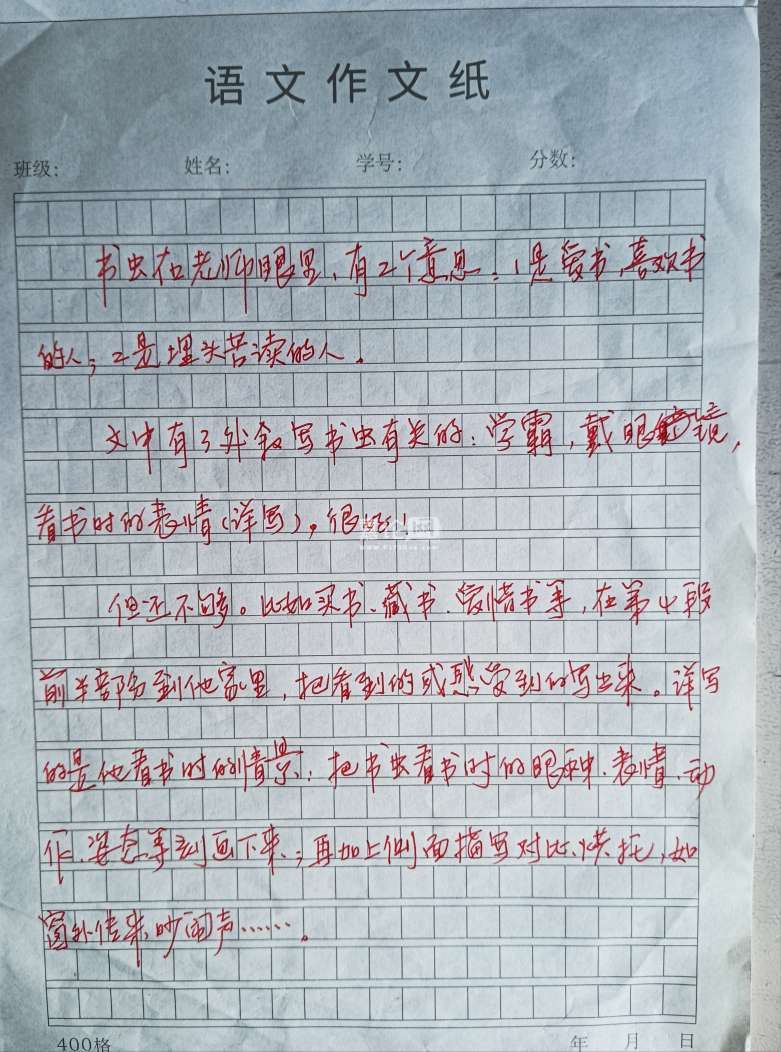 语文作文纸
班级: 姓名: 学号: 分数:
书虫在老师眼里,有2个意思:1是爱书,喜欢书
的人;2是埋头苦读的人.
文中有3处叙写书虫有关的:学霸,戴眼镜,
看书时的表情(详写),很好!
但还不够。比如买书、藏书、爱惜书等,在第4段
前半部分到他家里,把看到的或感受到的写出来。详写
的是他看书时的情景:把书虫看书时的眼神、表情、动
作、姿态等刻画下来;再加上侧面描写对比、烘托,如
窗外传来吵闹声……。
400格 年 月 日